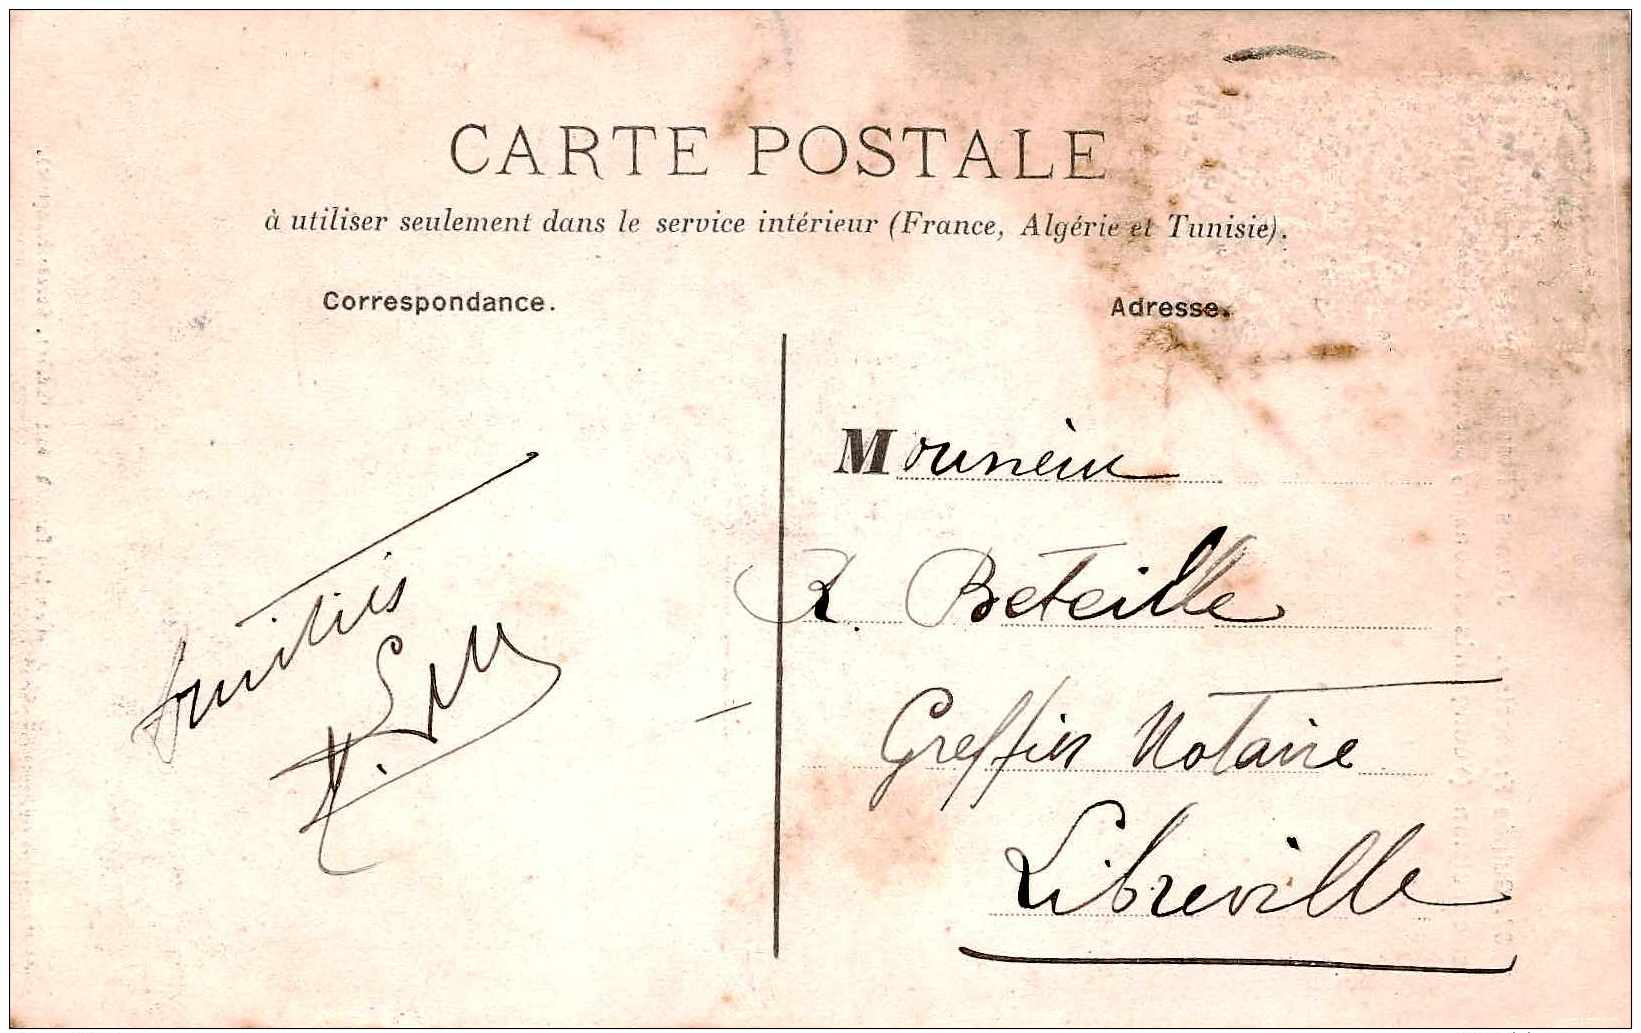 CARTE POSTALE
à utiliser seulement dans le service intérieur (France, Algérie et Tunisie).
Correspondance.
Adresse.
amitiés
Monsieur
R. Beteille
Greffier Notaire
Libreville